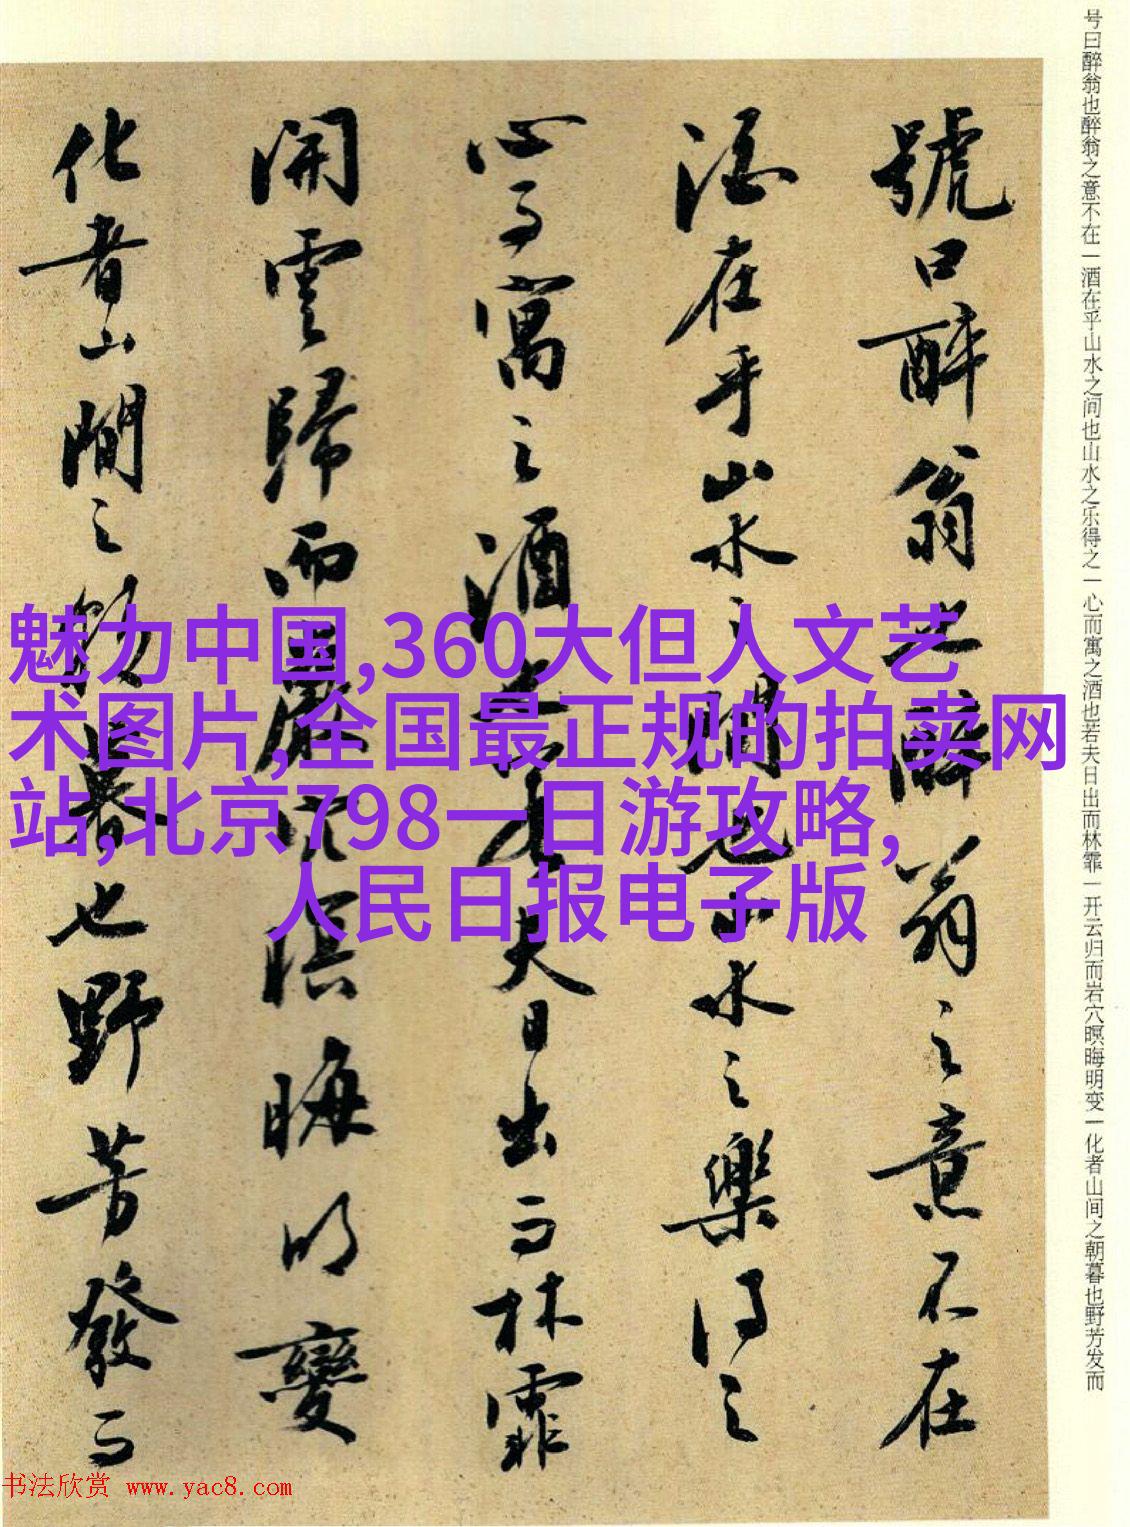 号曰醉翁也醉翁之意不在一酒在乎山水之间也山水之乐得之一心而寓之酒也若夫日出而林霏一开云归而岩穴暝晦明变一化者山间之朝暮也野芳发而
號曰醉翁也醉翁之意不在
酒在乎山水之間也山水之樂得之
心而寓之酒也若夫日出而林霏
開雲歸而巖穴暝晦明變
化者山間之朝暮也野芳發而
魅力中国,360大但人文艺
术图片,全国最正规的拍卖网
站,北京798一日游攻略,
人民日报电子版
书法欣赏 www.yac8.com